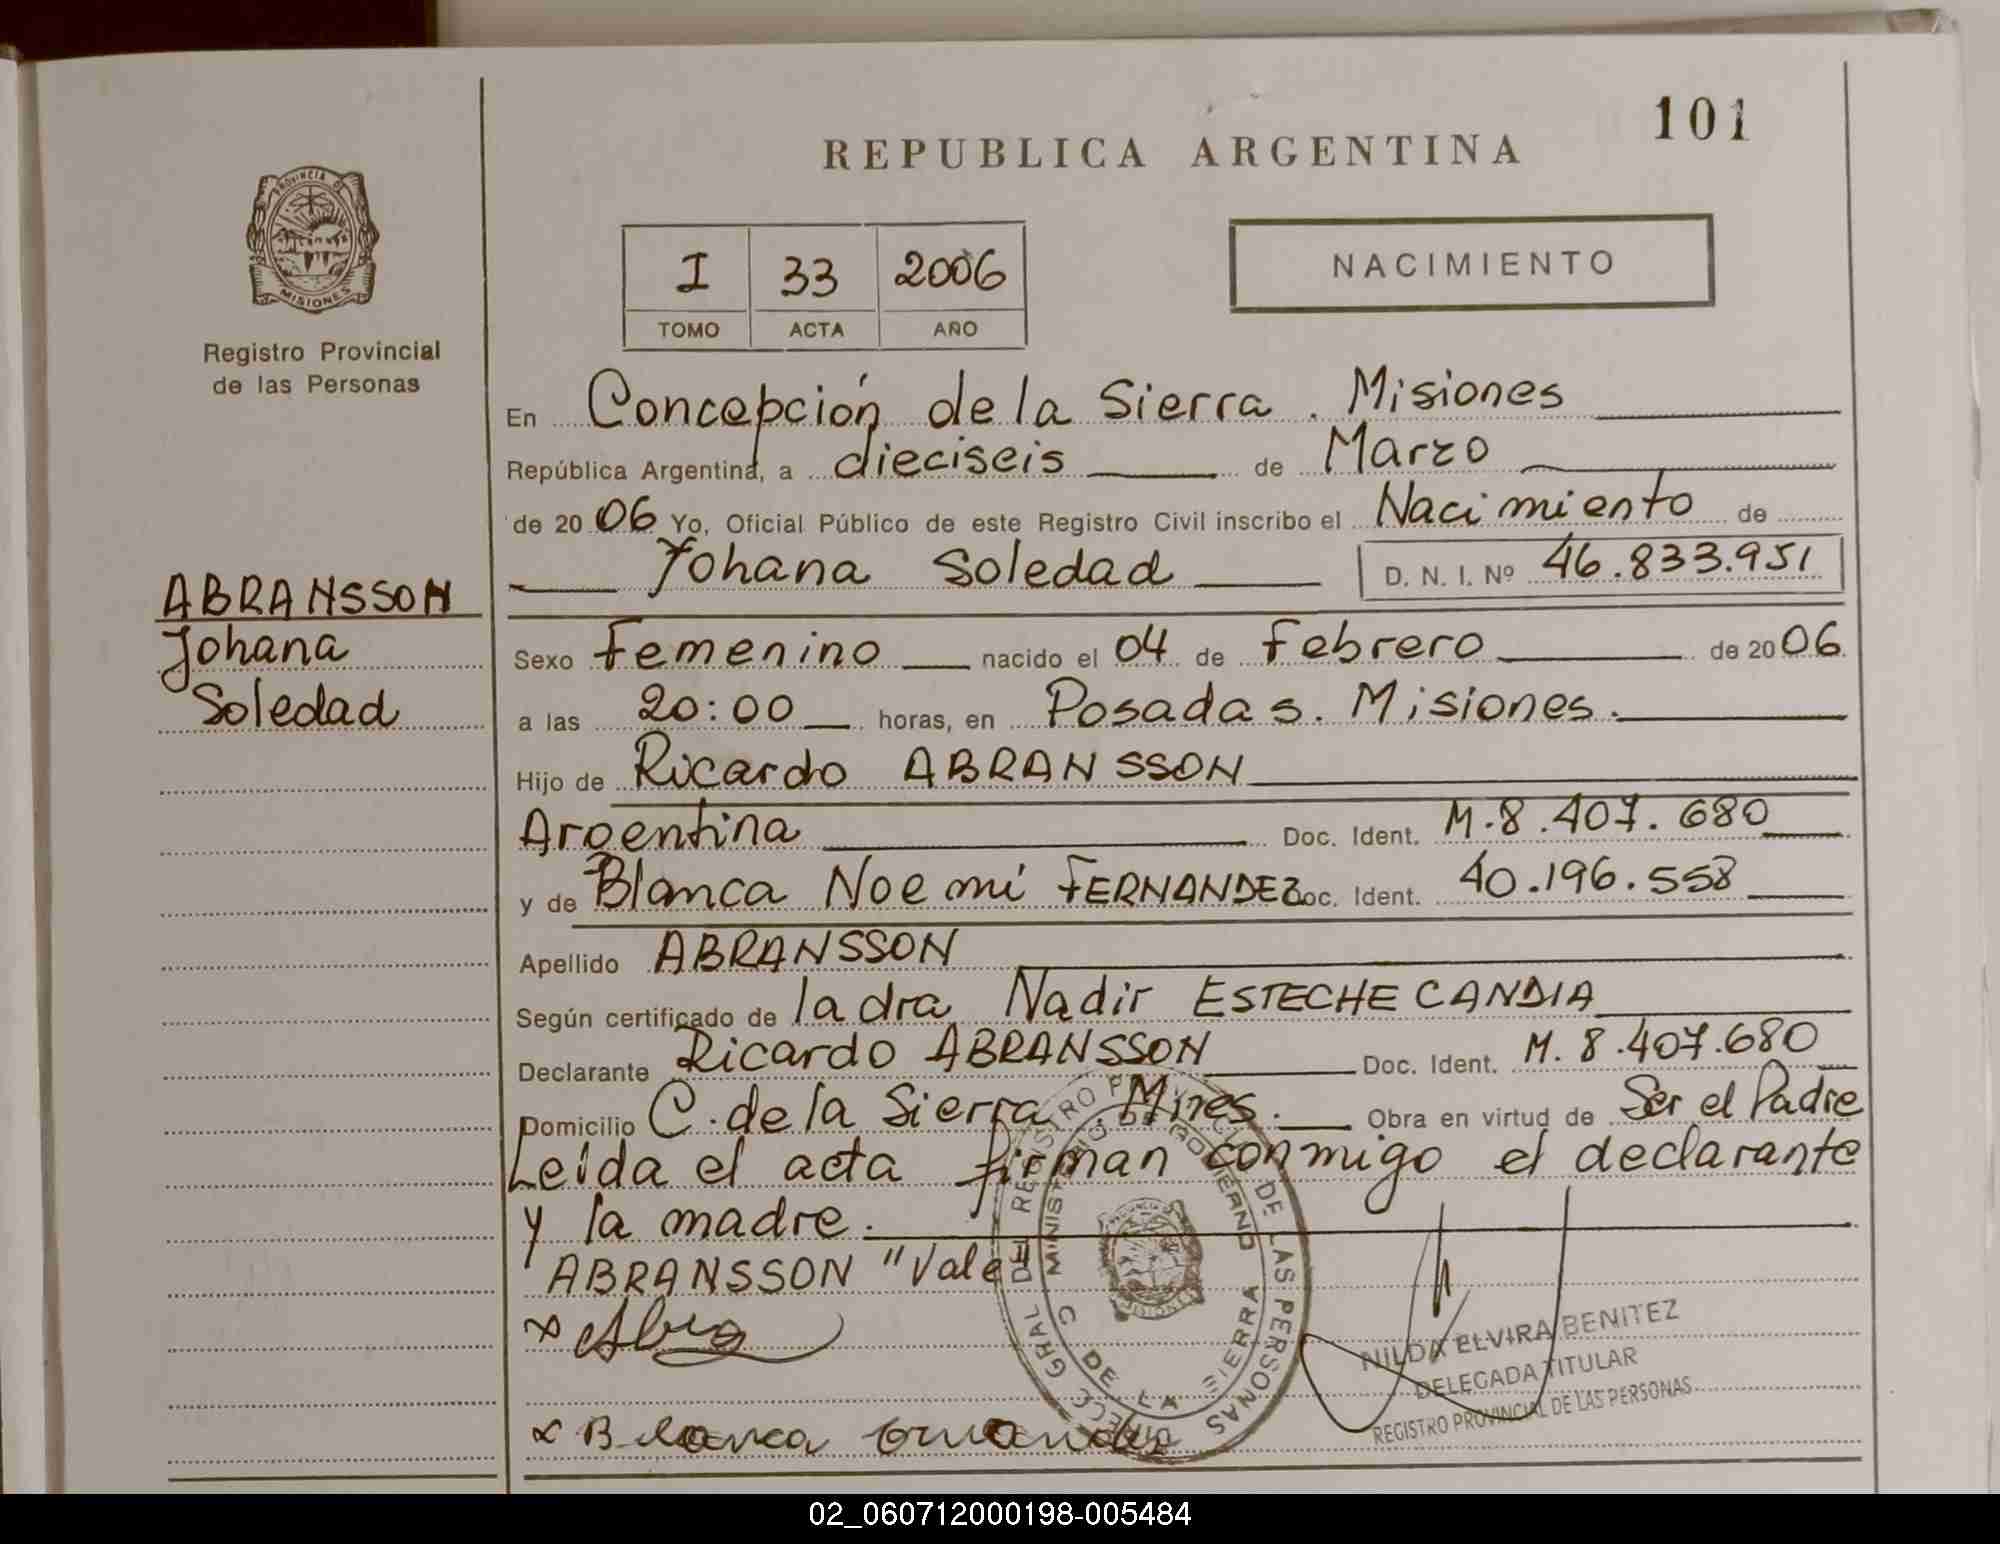 101
REPUBLICA ARGENTINA
PROVINCIA DE
MISIONES
Registro Provincial
de las Personas
I 33 2006
TOMO ACTA AÑO
NACIMIENTO
En Concepción de la Sierra. Misiones
República Argentina, a dieciseis de Marzo
de 2006 Yo, Oficial Público de este Registro Civil inscribo el Nacimiento de
Johana Soledad D. N. I. Nº 46.833.951
ABRANSSON
Johana
Soledad
Sexo Femenino nacido el 04 de Febrero de 2006
a las 20:00 horas, en Posadas. Misiones.
Hijo de Ricardo ABRANSSON
Argentina Doc. Ident. M.8.407.680
y de Blanca Noemí FERNANDEZ Doc. Ident. 40.196.558
Apellido ABRANSSON
Según certificado de la dra Nadir ESTECHE CANDIA
Declarante Ricardo ABRANSSON Doc. Ident. M. 8.407.680
Domicilio C. de la Sierra. Mnes. Obra en virtud de Ser el Padre
Leida el acta firman conmigo el declarante
y la madre.
ABRANSSON "Vale"
x Abra
x Blanca
DIRECC GRAL DEL REGISTRO PROVINCIAL DE LAS PERSONAS
MINISTERIO DE GOBIERNO
C DE LA SIERRA
NILDA ELVIRA BENITEZ
DELEGADA TITULAR
REGISTRO PROVINCIAL DE LAS PERSONAS
02_060712000198-005484